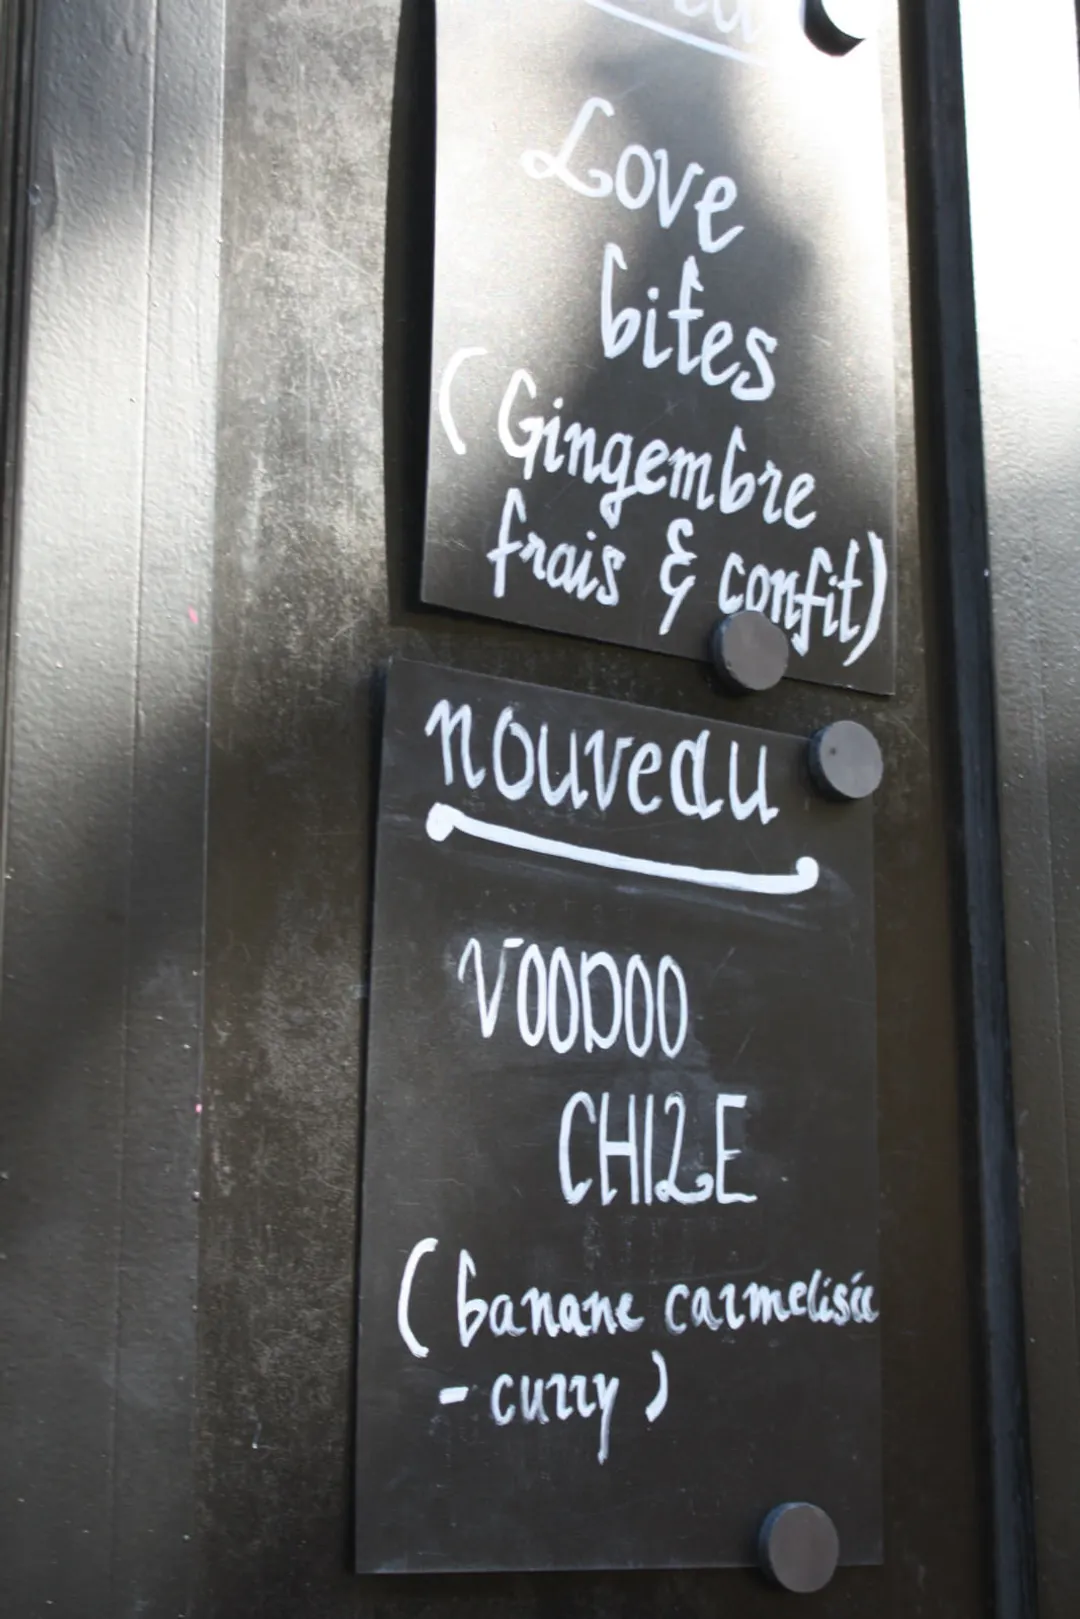 Love
bites
(Gingembre
frais & confit)
nouveau
VOODOO
CHILE
(banane carmelisée
- curry)